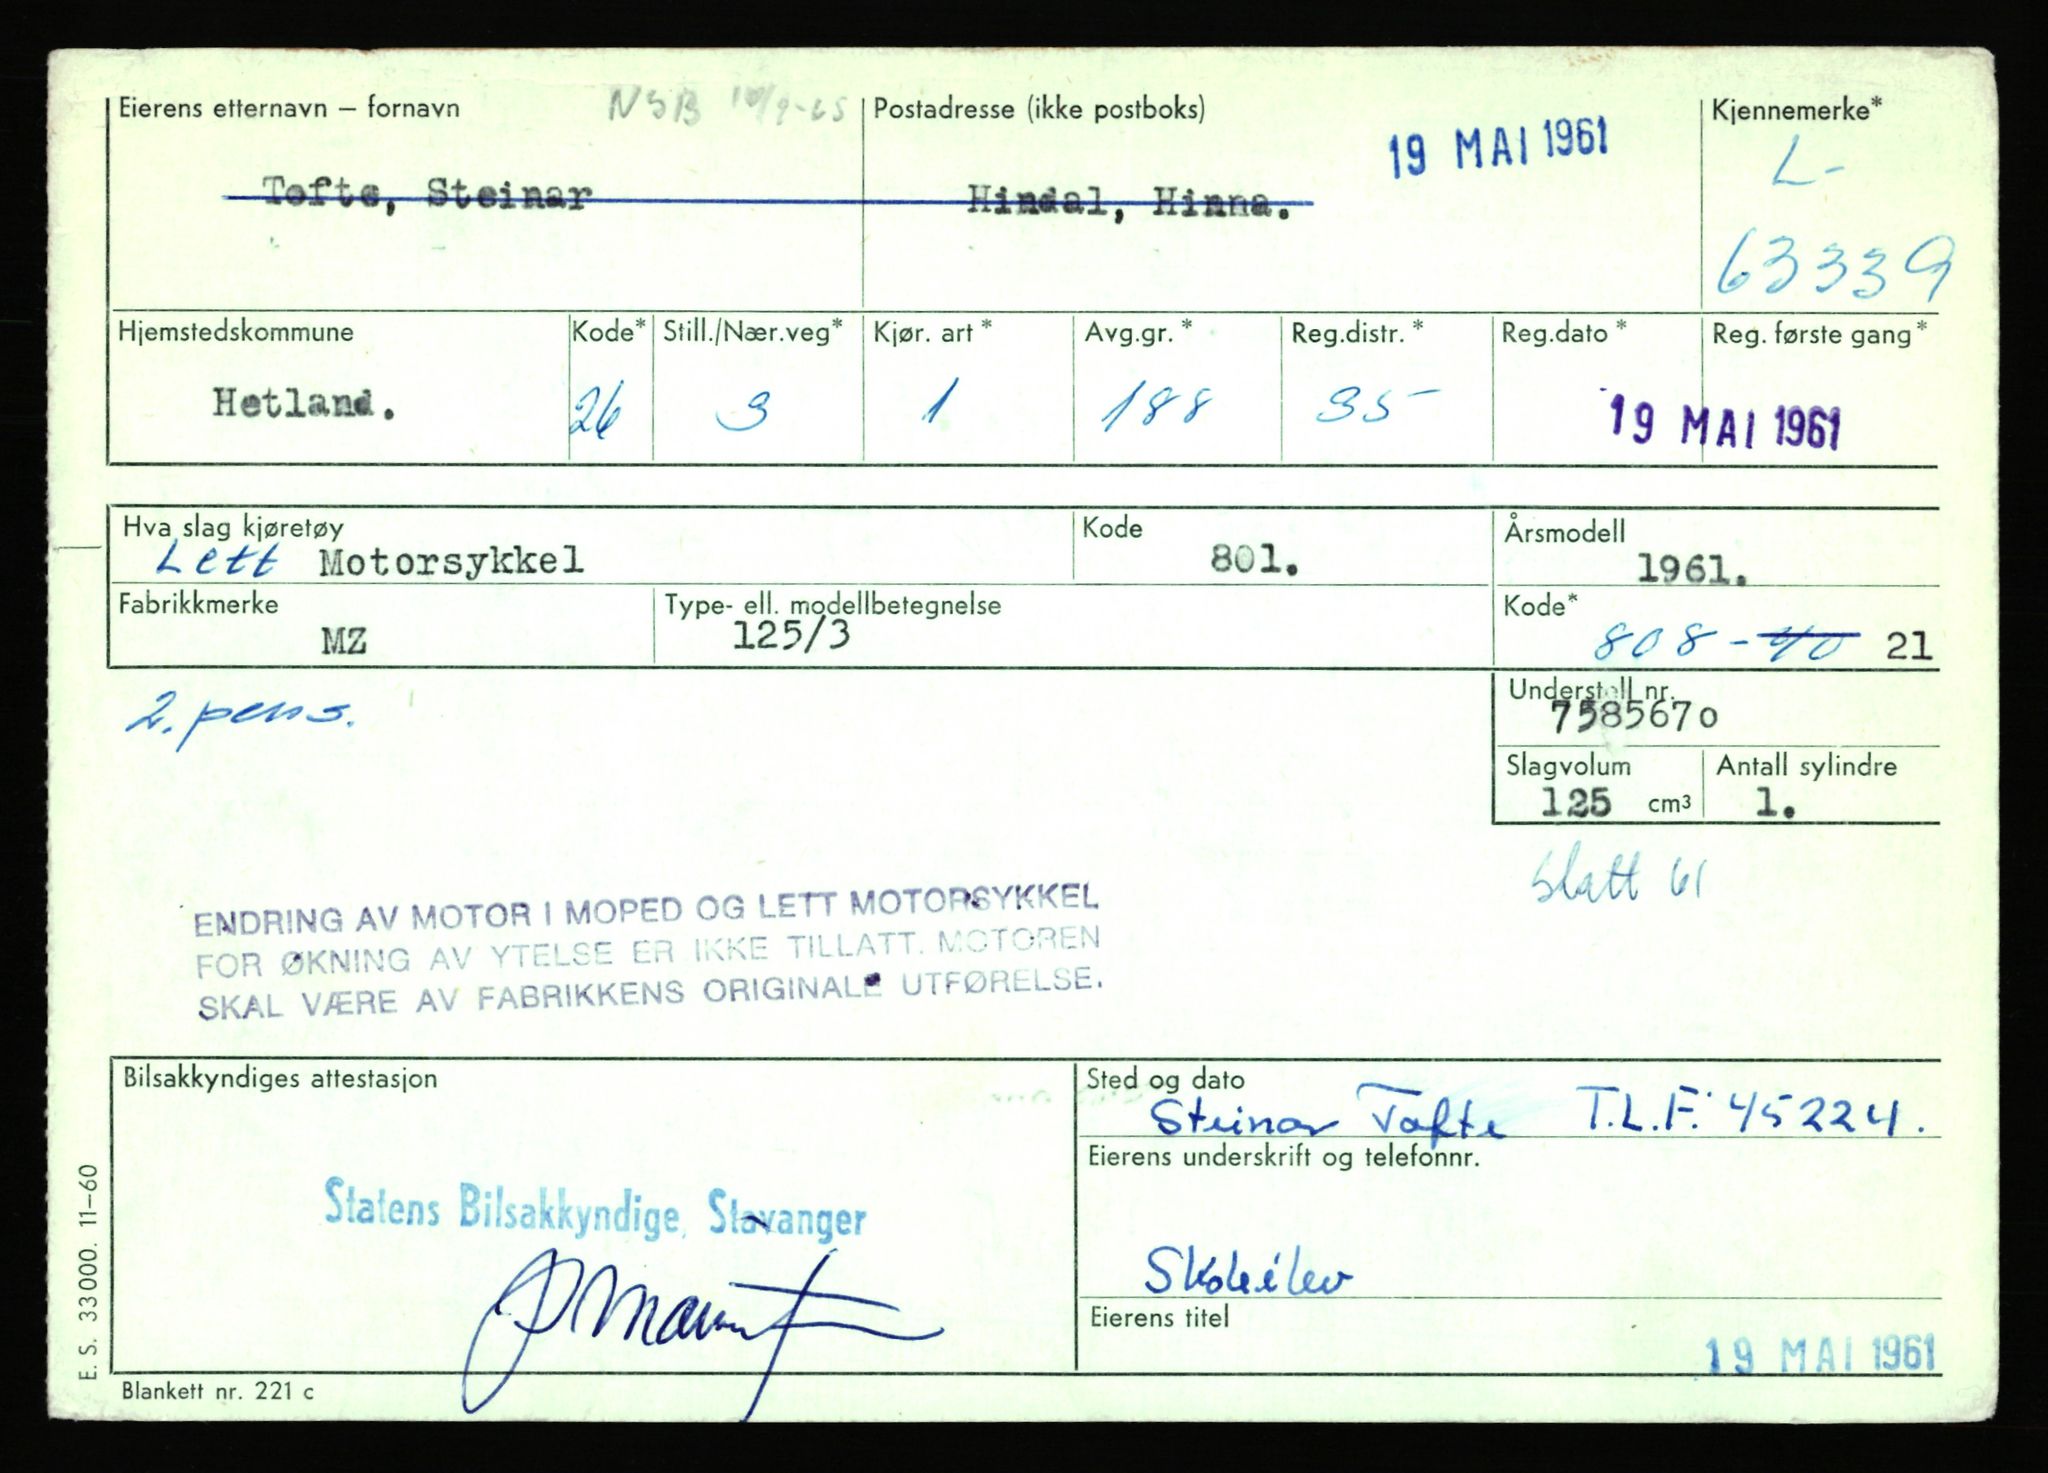 Eierens etternavn – fornavn NSB 10/9-65 Postadresse (ikke postboks) Kjennemerke*
19 MAI 1961 L-
Tofte, Steinar Hindal, Hinna.
63339
Hjemstedskommune Kode* Still./Nær.veg* Kjør. art * Avg.gr. * Reg.distr. * Reg.dato * Reg. første gang*
Hetland. 26 3 1 188 35 19 MAI 1961
Hva slag kjøretøy Kode Årsmodell
Lett Motorsykkel 801. 1961.
Fabrikkmerke Type- ell. modellbetegnelse Kode*
MZ 125/3 808-40 21
2. pers. Understell nr.
7585670
Slagvolum Antall sylindre
125 cm3 1.
Slatt 61
ENDRING AV MOTOR I MOPED OG LETT MOTORSYKKEL
FOR ØKNING AV YTELSE ER IKKE TILLATT. MOTOREN
SKAL VÆRE AV FABRIKKENS ORIGINALE UTFØRELSE.
Bilsakkyndiges attestasjon Sted og dato
Steinar Tofte T.L.F. 45224.
Eierens underskrift og telefonnr.
Statens Bilsakkyndige, Stavanger
Skoleilev
Eierens titel
19 MAI 1961
Blankett nr. 221 c
E. S. 33000. 11–60